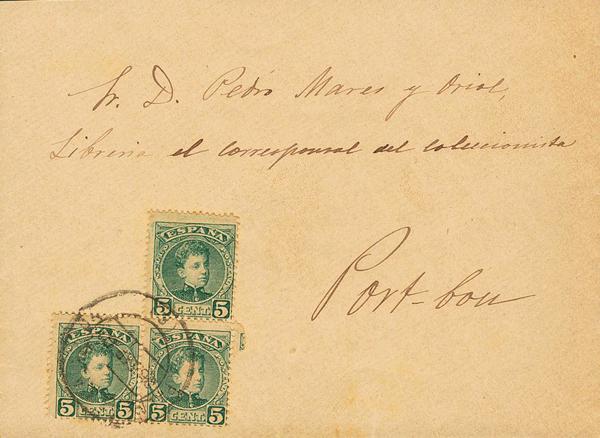 Sr. D. Pedro Mares y Oriol,
Libreria el corresponsal del coleccionista
Port-bou
ESPAÑA
5 CENT. 5
ESPAÑA
5 CENT. 5
ESPAÑA
5 CENT. 5